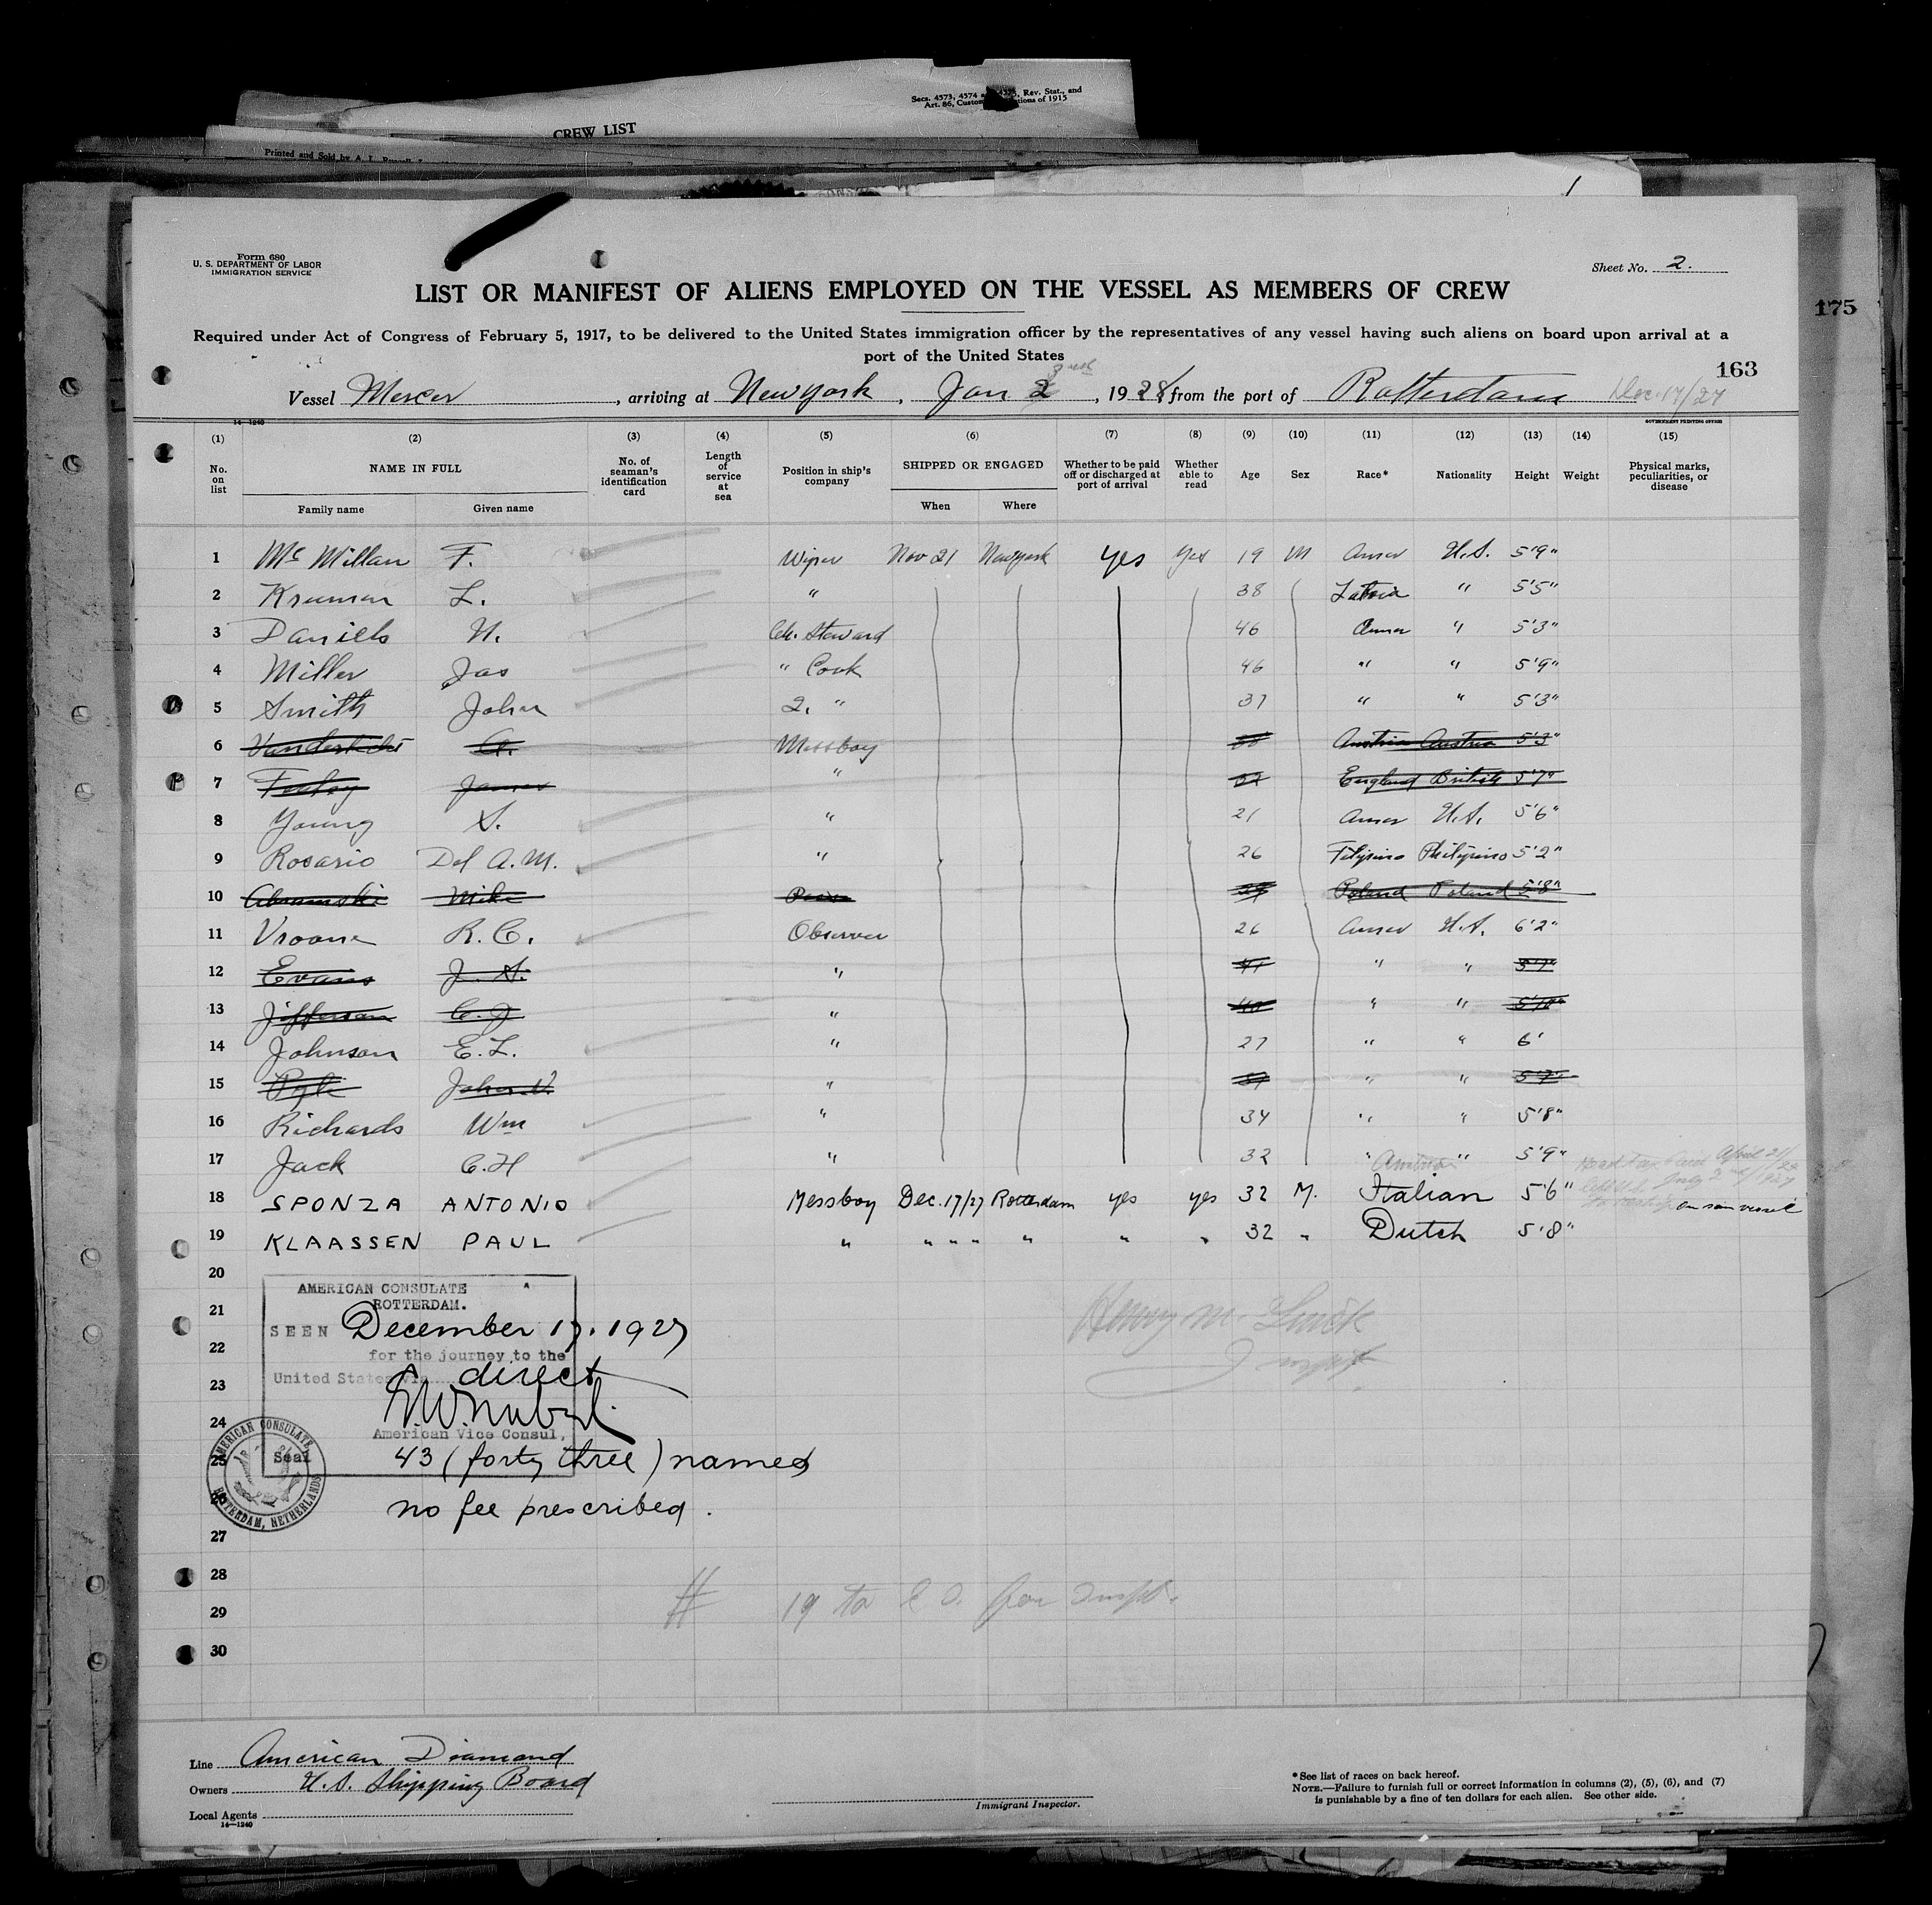 Secs. 4573, 4574 a 4575, Rev. Stat., and
Art. 86, Custom tions of 1915
CREW LIST
Printed and Sold by A. L.
1
Form 680
U. S. DEPARTMENT OF LABOR
IMMIGRATION SERVICE
Sheet No. 2.
LIST OR MANIFEST OF ALIENS EMPLOYED ON THE VESSEL AS MEMBERS OF CREW
175
Required under Act of Congress of February 5, 1917, to be delivered to the United States immigration officer by the representatives of any vessel having such aliens on board upon arrival at a
port of the United States
163
Vessel Mercer, arriving at New York, Jan 2 3rd, 1928 from the port of Rotterdam Dec. 17/27
14—1240
GOVERNMENT PRINTING OFFICE
(1) (2) (3) (4) (5) (6) (7) (8) (9) (10) (11) (12) (13) (14) (15)
No. on list NAME IN FULL No. of seaman's identification card Length of service at sea Position in ship's company SHIPPED OR ENGAGED Whether to be paid off or discharged at port of arrival Whether able to read Age Sex Race* Nationality Height Weight Physical marks, peculiarities, or disease
Family name Given name When Where
1 McMillan F. Wiper Nov 21 New York Yes Yes 19 M Amer U.S. 5'9"
2 Kruman L. " 38 Latvia " 5'5"
3 Daniels N. Ch. Steward 46 Amer " 5'3"
4 Miller Jas " Cook 46 " " 5'9"
5 Smith John 2. " 37 " " 5'3"
6 A. Messboy Austria Austria 5'3"
7 James " England British 5'7"
8 Young S. " 21 Amer U.S. 5'6"
9 Rosario Del A.M. " 26 Filipino Philipino 5'2"
10 Abramski Mike Poland Poland 5'8"
11 Vroane R.C. Observer 26 Amer U.S. 6'2"
12 Evans J. S. " 41 " " 5'7"
13 Jefferson C. J " 40 " " 5'10"
14 Johnson E.L. " 27 " " 6'
15 Pyle John V. " " " 5'7"
16 Richards Wm " 34 " " 5'8"
17 Jack C.H " 32 " " 5'9"
18 SPONZA ANTONIO Messboy Dec. 17/27 Rotterdam yes yes 32 M. Italian 5'6" on sam vessel
19 KLAASSEN PAUL " " " " " " " 32 " Dutch 5'8"
20
AMERICAN CONSULATE
ROTTERDAM.
21
SEEN December 17. 1927
22
for the journey to the
United States via direct
23
24
American Vice Consul,
25
Seal
AMERICAN CONSULATE
ROTTERDAM, NETHERLANDS
43 (forty three) names
26
no fee prescribed.
27
Henry M.
28
29
# 19 to for
30
Line American Diamond
Owners U.S. Shipping Board
Local Agents
14—1240
Immigrant Inspector.
*See list of races on back hereof.
NOTE.—Failure to furnish full or correct information in columns (2), (5), (6), and (7)
is punishable by a fine of ten dollars for each alien. See other side.